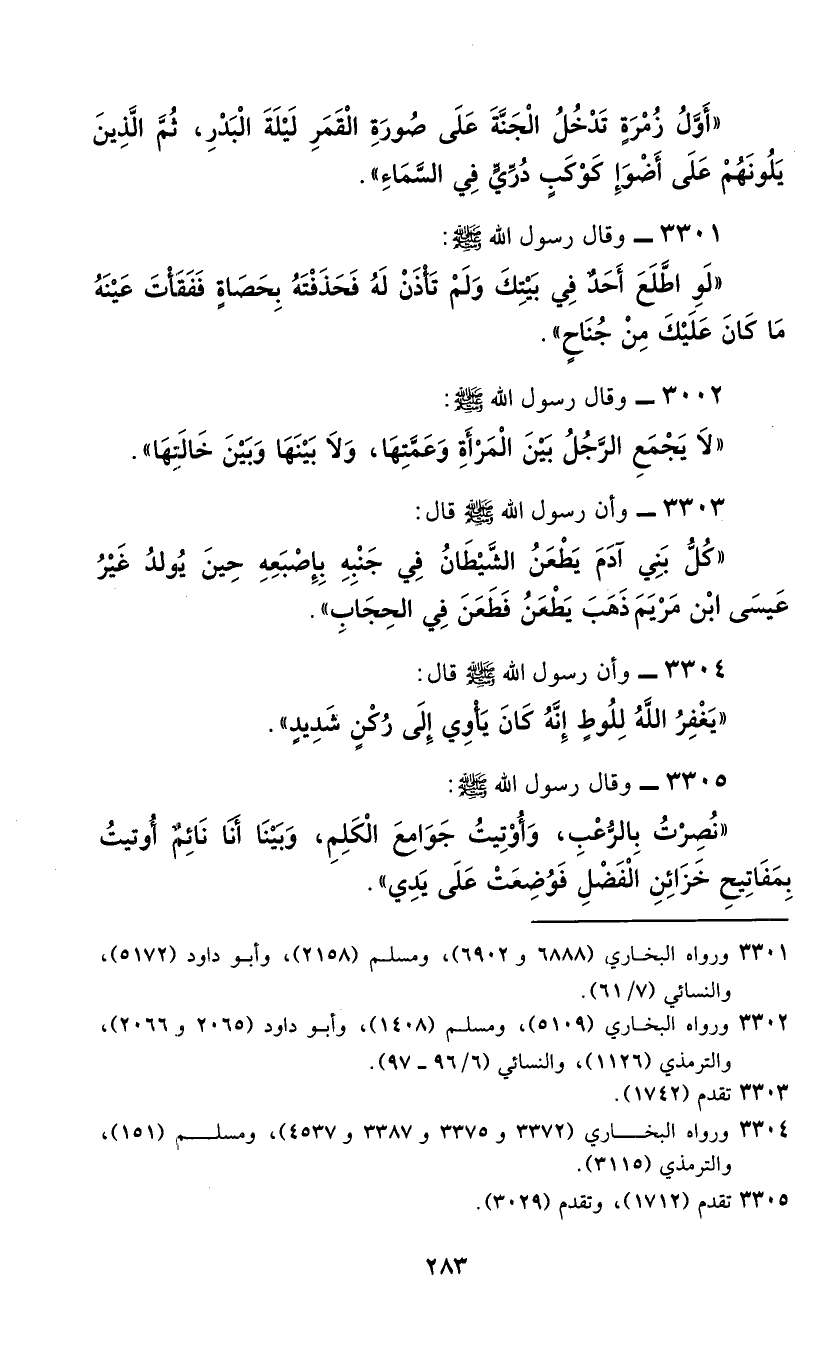 «أَوَّلُ زُمْرَةٍ تَدْخُلُ الْجَنَّةَ عَلَى صُورَةِ الْقَمَرِ لَيْلَةَ الْبَدْرِ، ثُمَّ الَّذِينَ
يَلُونَهُمْ عَلَى أَضْوَإِ كَوْكَبٍ دُرِّيٍّ فِي السَّمَاءِ».
٣٣٠١ ـ وقال رسول الله ﷺ:
«لَوِ اطَّلَعَ أَحَدٌ فِي بَيْتِكَ وَلَمْ تَأْذَنْ لَهُ فَحَذَفْتَهُ بِحَصَاةٍ فَفَقَأْتَ عَيْنَهُ
مَا كَانَ عَلَيْكَ مِنْ جُنَاحٍ».
٣٠٠٢ ـ وقال رسول الله ﷺ:
«لَا يَجْمَعِ الرَّجُلُ بَيْنَ الْمَرْأَةِ وَعَمَّتِهَا، وَلَا بَيْنَهَا وَبَيْنَ خَالَتِهَا».
٣٣٠٣ ـ وأن رسول الله ﷺ قال:
«كُلُّ بَنِي آدَمَ يَطْعَنُ الشَّيْطَانُ فِي جَنْبِهِ بِإِصْبَعِهِ حِينَ يُولدُ غَيْرُ
عَيسَى ابْن مَرْيَمَ ذَهَبَ يَطْعَنُ فَطَعَنَ فِي الحِجَابِ».
٣٣٠٤ ـ وأن رسول الله ﷺ قال:
«يَغْفِرُ اللَّهُ لِلُوطٍ إِنَّهُ كَانَ يَأْوِي إِلَى رُكْنٍ شَدِيدٍ».
٣٣٠٥ ـ وقال رسول الله ﷺ:
«نُصِرْتُ بِالرُّعْبِ، وَأُوْتِيتُ جَوَامِعَ الْكَلِمِ، وَبَيْنَا أَنَا نَائِمٌ أُوتيتُ
بِمَفَاتِيحِ خَزَائِنِ الْفَضْلِ فَوُضِعَتْ عَلَى يَدِي».
٣٣٠١ ورواه البخاري (٦٨٨٨ و ٦٩٠٢)، ومسلم (٢١٥٨)، وأبو داود (٥١٧٢)،
والنسائي (٦١/٧).
٣٣٠٢ ورواه البخاري (٥١٠٩)، ومسلم (١٤٠٨)، وأبو داود (٢٠٦٥ و ٢٠٦٦)،
والترمذي (١١٢٦)، والنسائي (٩٦/٦ ـ ٩٧).
٣٣٠٣ تقدم (١٧٤٢).
٣٣٠٤ ورواه البخاري (٣٣٧٢ و ٣٣٧٥ و ٣٣٨٧ و ٤٥٣٧)، ومسلم (١٥١)،
والترمذي (٣١١٥).
٣٣٠٥ تقدم (١٧١٢)، وتقدم (٣٠٢٩).
٢٨٣